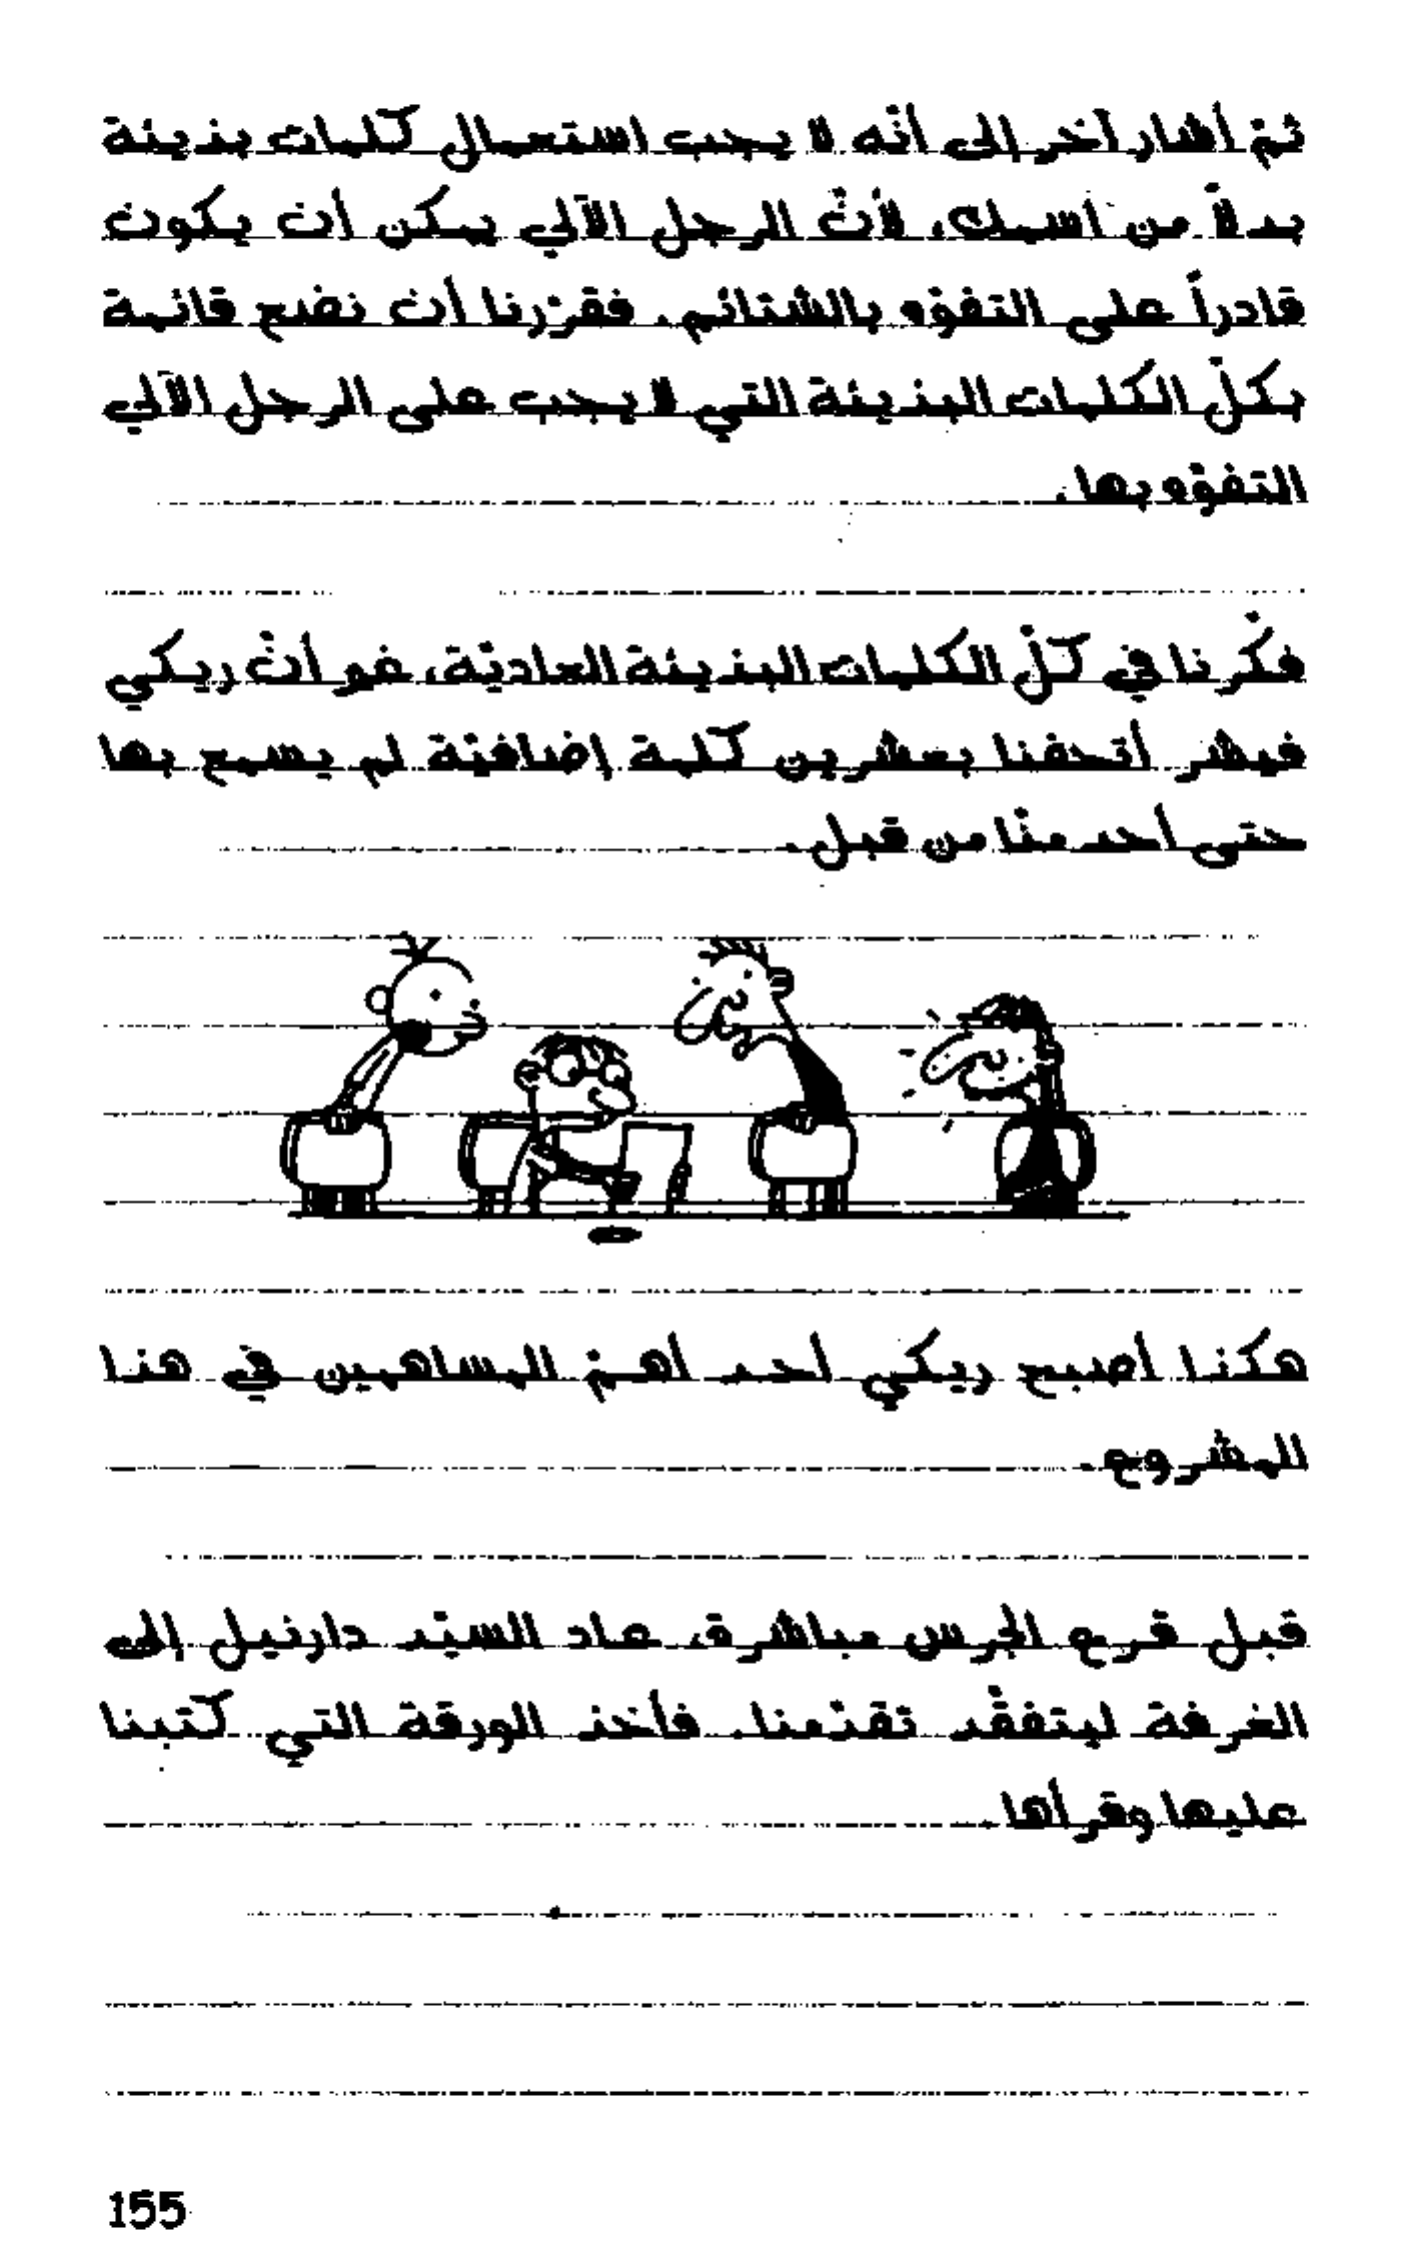 ثمّ أشار آخر إلى أنّه لا يجب استعمال كلمات بذيئة
بدلاً من اسمك، لأنّ الرجل الآلي يمكن أن يكون
قادراً على التفوّه بالشتائم. فقرّرنا أن نضع قائمة
بكلّ الكلمات البذيئة التي لا يجب على الرجل الآلي
التفوّه بها.
فكّرنا في كلّ الكلمات البذيئة العاديّة، غو أنّ ريكي
فيشر أتحفنا بعشرين كلمة إضافيّة لم يسمع بها
حتى أحد منّا من قبل.
هكذا أصبح ريكي أحد أهمّ المساهمين في هذا
المشروع.
قبل قرع الجرس مباشرة، عاد السيّد دارنيل إلى
الغرفة ليتفقّد تقدّمنا. فأخذ الورقة التي كتبنا
عليها وقرأها.
155